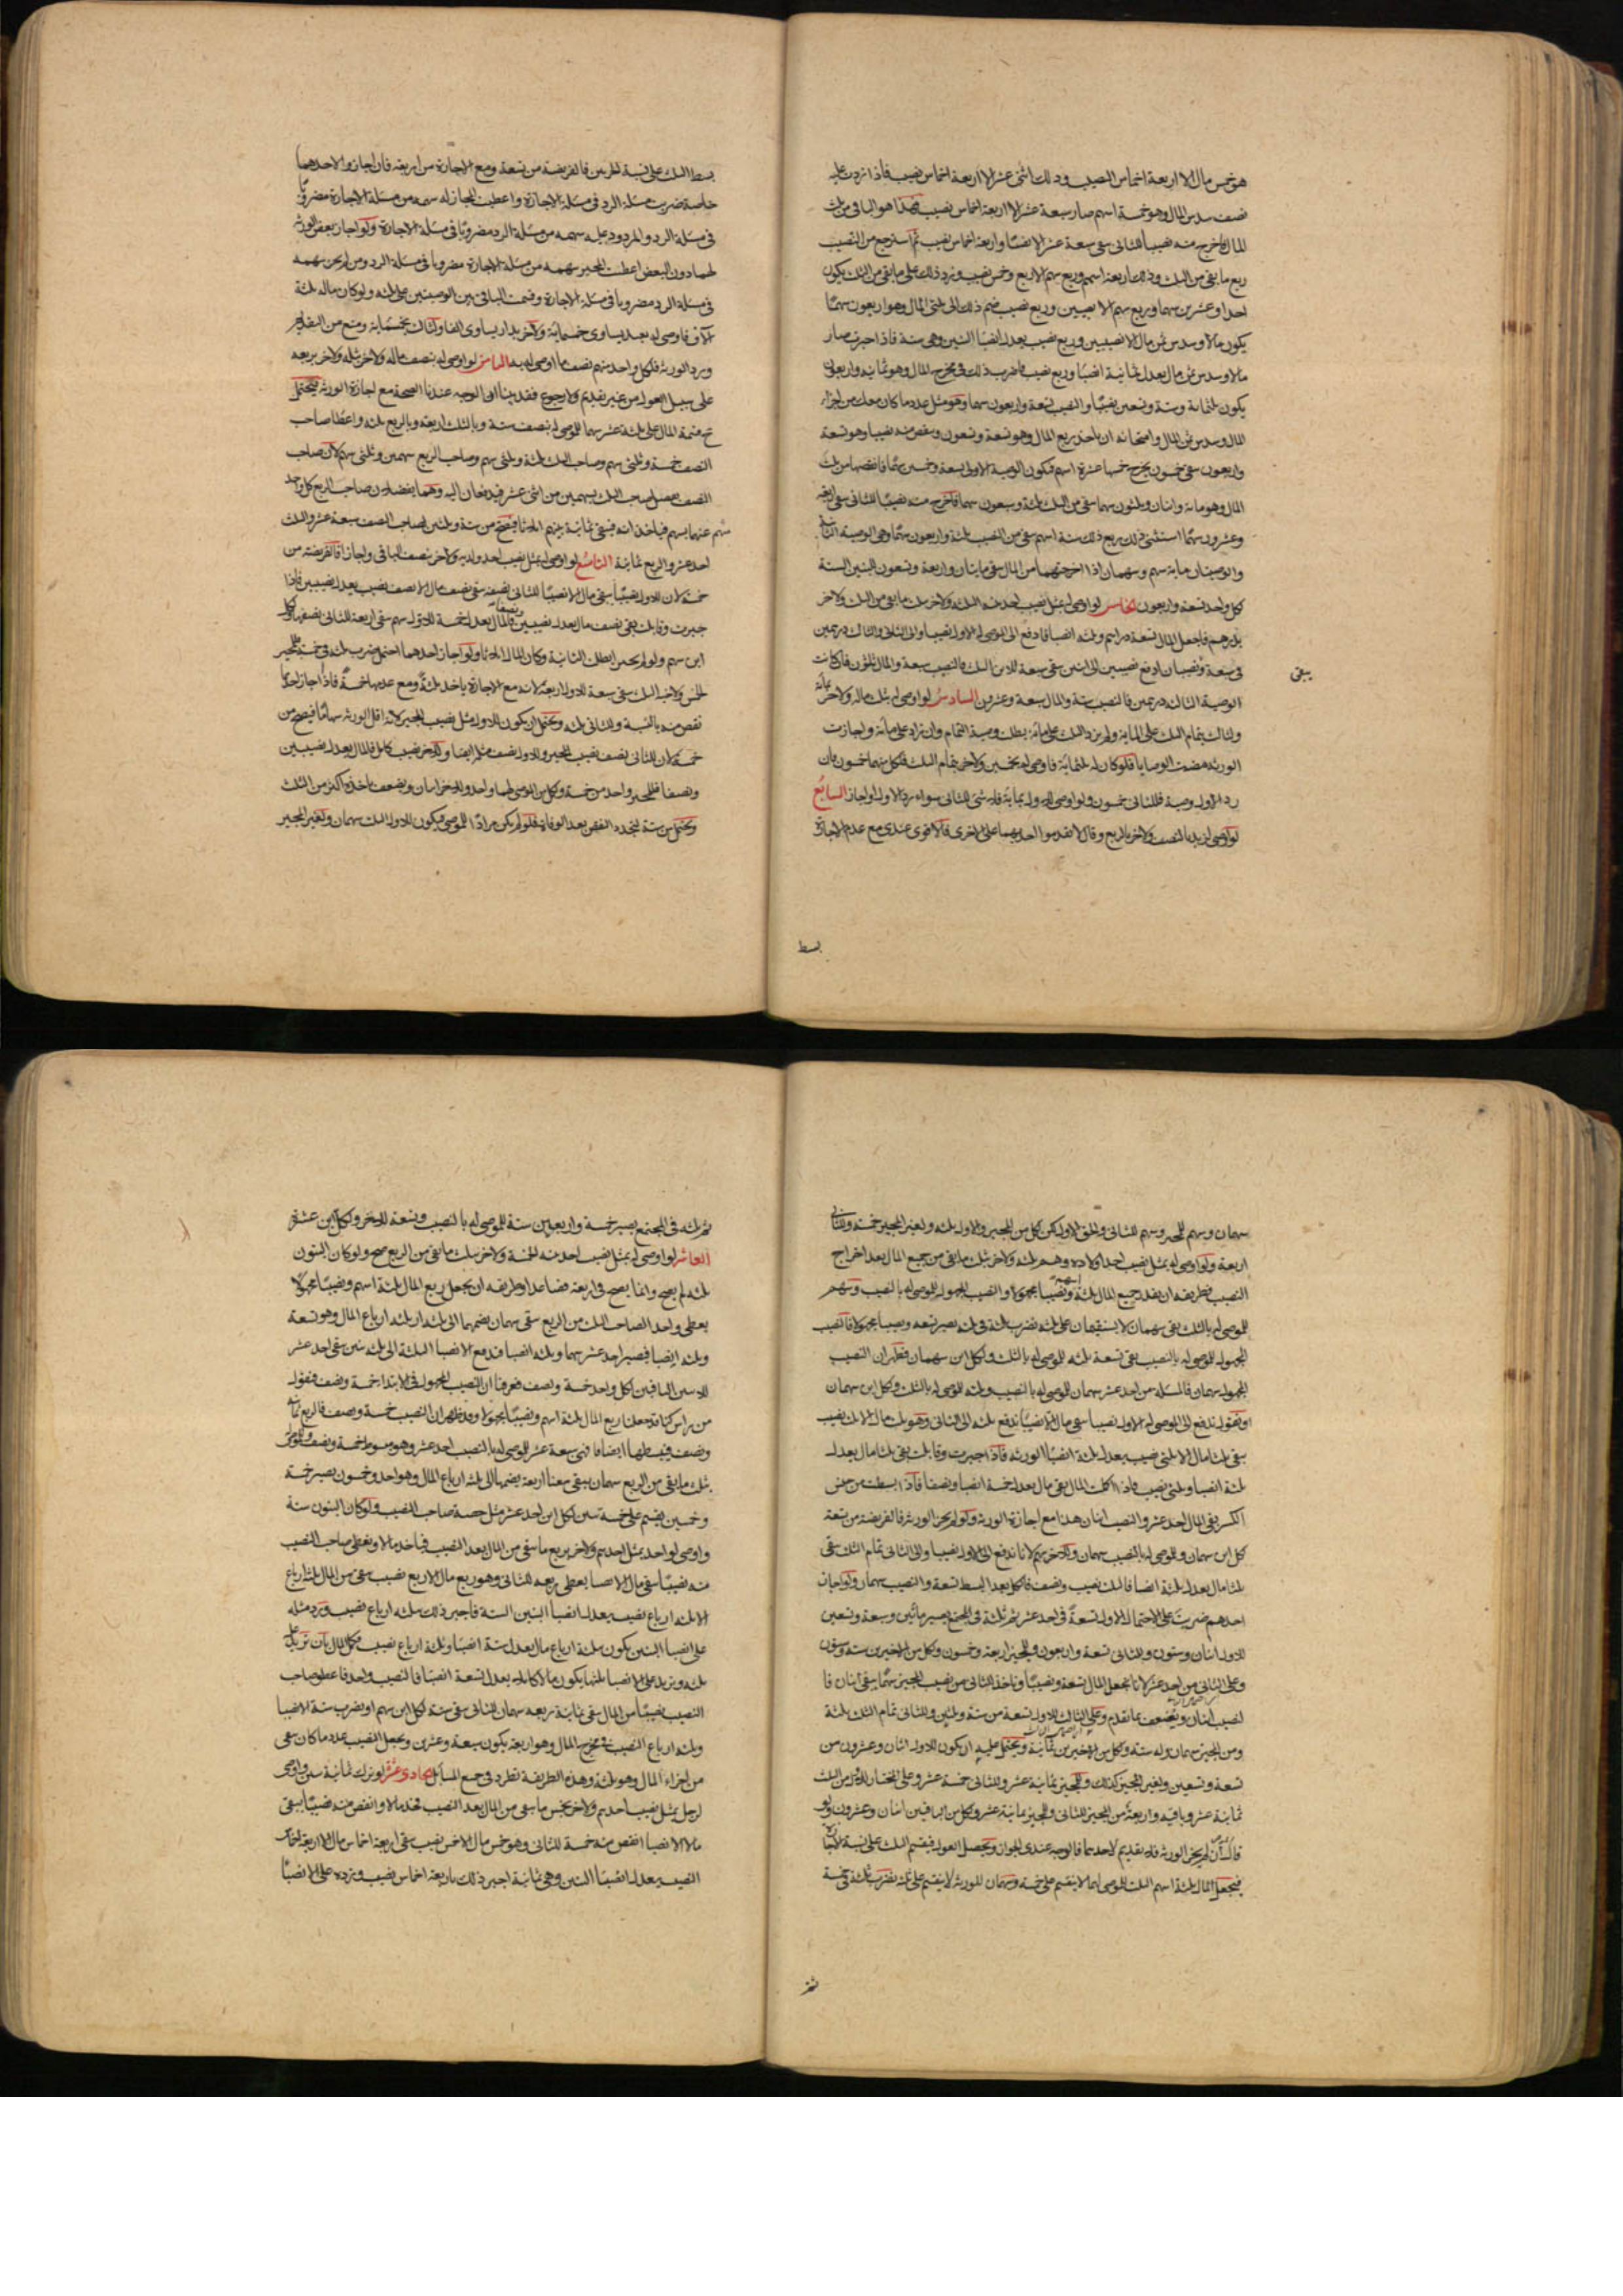 هو خمس مال الا اربعة اخماس النصيب وذلك اثنى عشر الا اربعة اخماس نصيب فاذا زدت عليه
نصف سدس المال وهو خمسة اسهم صار سبعة عشر الا اربعة اخماس نصيب فهذا هو الباقى من ثلث
المال فاخرج منه نصيبا للثانى يبقى سبعة عشر الا نصيبا واربعة اخماس نصيب ثم استرجع من النصيب
ربع ما بقى من الثلث وذلك اربعة اسهم وربع سهم الا ربع وخمس نصيب وزد ذلك على ما بقى من الثلث يكون
احدا وعشرين سهما وربع سهم الا نصيبين وربع نصيب ضم ذلك الى ثلثى المال وهو اربعون سهما
يكون مالا وسدس ثمن مال الا نصيبين وربع نصيب يعدل انصبا البنين وهى ستة فاذا اجبرت صار
مالا وسدس ثمن مال يعدل ثمانية انصبا وربع نصيب فاضرب ذلك فى مخرج المال وهو ثمانية واربعون
يكون ثلثمائة وستة وتسعين نصيبا والنصيب تسعة واربعون سهما وهو مثل عدد ما كان معك من اجزاء
المال وسدس ثمن المال وامتحانه ان ياخذ ربع المال وهو تسعة وتسعون وينقص منه نصيبا وهو تسعة
واربعون يبقى خمسون يخرج خمسها عشرة اسهم فيكون الوصية الاولى تسعة وخمسين سهما فانقصها من ثلث
المال وهو مائة واثنان وثلثون سهما يبقى من الثلث ثلثة وسبعون سهما فاخرج منه نصيبا للثانى يبقى اربعة
وعشرون سهما استثنى ذلك ربع ذلك ستة اسهم يبقى من النصيب ثلثة واربعون سهما وهى الوصية الثانية
والوصيتان مائة سهم وسهمان اذا اخرجتهما من المال يبقى مايتان واربعة وتسعون للبنين الستة
كل واحد تسعة واربعون الخامس لو اوصى له بمثل نصيب احد بنيه الثلثة ولاخر بثلث ما يبقى من الثلث ولاخر
بدرهم فاجعل المال تسعة دراهم وثلثة انصبا فادفع الى الموصى له الاول نصيبا والى الثانى والثالث درهمين
بقى سبعة ونصيبان ادفع نصيبين الى ابنين يبقى سبعة للابن الثالث فالنصيب سبعة والمال ثلثون فان كانت
الوصية الثالثة درهمين فالنصيب ستة والمال سبعة وعشرون السادس لو اوصى له بثلث ماله ولاخر بمائة
ولثالث بتمام الثلث على المائة ولم يزد الثلث على مائة بطلت وصية التمام وان زاد على مائة واجازت
الورثة مضت الوصايا فلو كان له ثلثمائة فاوصى له بخمسين ولاخر بتمام الثلث فلكل منهما خمسون فان
رد الاول وصية فللثانى خمسون ولو اوصى للاول بمائة فلا شئ للثانى سواء رد الاول او اجاز السابع
لو اوصى لزيد بالنصف ولاخر بالربع وقال لا تقدموا احديهما على الاخرى فالاقوى عندى مع عدم الاجازة
يبقى
بسط
بسط الثلث على نسبة الجزئين فالفريضة من تسعة ومع الاجازة من اربعة فان اجازوا لاحدهما
خاصة ضربت مسئلة الرد فى مسئلة الاجازة واعطيت المجاز له سهمه من مسئلة الاجازة مضروبا
فى مسئلة الرد والمردود عليه سهمه من مسئلة الرد مضروبا فى مسئلة الاجازة ولو اجاز بعض الورثة
لهما دون البعض اعطيت المجيز سهمه من مسئلة الاجازة مضروبا فى مسئلة الرد ومن لم يجز سهمه
فى مسئلة الرد مضروبا فى مسئلة الاجازة وقسمت الباقى بين الوصيتين على ثلثة ولو كان ماله ثلثة
الاف فاوصى له بعبد يساوى خمسمائة ولاخر بدار يساوى الفا ولثالث بخمسمائة ومنع من التقديم
ورد الورثة فلكل واحد منهم نصف ما اوصى له به الثامن لو اوصى له بنصف ماله ولاخر بثلثه ولاخر بربعه
على سبيل العول من غير تقديم ولا رجوع فقد بينا ان الوجه عندنا الصحة مع اجازة الورثة فيحتمل
ح قسمة المال على ثلثة عشر سهما للموصى له بنصف ستة وبالثلث اربعة وبالربع ثلثة واعطا صاحب
النصف خمسة وثلثى سهم وصاحب الثلث ثلثة وثلثى سهم وصاحب الربع سهمين وثلثى سهم لان صاحب
النصف يفضل صاحب الثلث بسهمين من اثنى عشر فيدفعان اليه وهما يفضلان صاحب الربع كل واحد
منهم عنهما بسهم فياخذانه فيبقى ثمانية بينهم اثلاثا فيصح من ستة وثلثين لصاحب النصف سبعة عشر والثلث
احد عشر والربع ثمانية التاسع لو اوصى له بمثل نصيب احد ولديه ولاخر بنصف الباقى واجازا فالفريضة من
خمسة لان للاول نصيبا يبقى مال الا نصيبا للثانى نصفه يبقى نصف مال الا نصف نصيب يعدل نصيبين فاذا
جبرت وقابلت بقى نصف مال يعدل نصيبين ونصفا فالمال يعدل خمسة للاول سهم يبقى اربعة للثانى نصفها ولكل
ابن سهم ولو لم يجيزا بطلت الثانية وكان المال اثلاثا ولو اجاز احدهما احتمل ضرب ثلثة فى خمسة فللمجيز
خمس ولاخيه الثلث يبقى سبعة للاول اربعة لانه مع الاجازة ياخذ ثلثة ومع عدمها خمسة فاذا اجاز احدهما
نقص منه بالنسبة وللثانى ثلثة ويحتمل ان يكون للاول مثل نصيب المجيز لانه اقل الورثة سهاما فيصح من
خمسة لان للثانى نصف نصيب المجيز وللاول نصف مثله ايضا وللاخر نصيب كامل فالمال يعدل نصيبين
ونصفا فللمجيز واحد من خمسة ولكل من الموصى لهما واحد وللاخر اثنان ويضعف باخذه اكثر من الثلث
ويحتمل من ستة لتجدد النقص بعد الوفاة فلو لم يكن مرادا للموصى فيكون للاول الثلث سهمان ولغير المجيز
سهمان وسهم للمجيز وسهم للثانى والحق الاول لكن لكل من المجيز والاول ثلثة ولغير المجيز خمسة وللثانى
اربعة ولو اوصى له بمثل نصيب احد اولاده وهم ثلثة ولاخر بثلث ما بقى من جميع المال بعد اخراج
النصيب فطريقه ان يقدر جميع المال ثلثة اسهم ونصيبا مجهولا والنصيب المجهول للموصى له بالنصيب وسهم
للموصى له بالثلث بقى سهمان لا يستقيمان على ثلثة نضرب ثلثة فى ثلثة يصير تسعة ونصيبا مجهولا فالنصيب
المجهول للموصى له بالنصيب بقى تسعة ثلثة للموصى له بالثلث ولكل ابن سهمان فظهر ان النصيب
المجهول سهمان فالمسئلة من احد عشر سهمان للموصى له بالنصيب وثلثة للموصى له بالثلث ولكل ابن سهمان
او نقول ندفع الى الموصى له الاول نصيبا يبقى مال الا نصيبا ندفع ثلثه الى الثانى وهو ثلث مال الا ثلث نصيب
يبقى ثلثا مال الا ثلثى نصيب يعدل ثلثة انصبا الورثة فاذا اجبرت وقابلت بقى ثلثا مال يعدل
ثلثة انصبا وثلثى نصيب فاذا اكملت المال بقى مال يعدل خمسة انصبا ونصفا فاذا بسطت من جنس
الكسر بقى المال احد عشر والنصيب اثنان هذا مع اجازة الورثة ولو لم يجز الورثة فالفريضة من تسعة
كل ابن سهمان وللموصى له بالنصيب سهمان وللاخر سهم لانا ندفع الى الاول نصيبا والى الثانى تمام الثلث يبقى
ثلثا مال يعدل ثلثة انصبا فالثلث نصيب ونصف فالكل بعد البسط تسعة والنصيب سهمان ولو اجاز
احدهم ضربت على الاحتمال الاول تسعة فى احد عشر ثم ثلثة فى المجتمع يصير مأتين وسبعة وتسعين
للاول اثنان وستون وللثانى تسعة واربعون وللمجيز اربعة وخمسون ولكل من الاخيرين ستة وستون
وعلى الثانى من احد عشر لانا نجعل المال تسعة ونصيبا وناخذ للثانى من نصيب المجيز سهما يبقى اثنان فا
لنصيب اثنان ويضعف بما تقدم وعلى الثالث للاول تسعة من ستة وثلثين وللثانى تمام الثلث ثلثة
ومن المجيز سهمان وله ستة ولكل من الاخيرين ثمانية ويحتمل عليه ان يكون للاول اثنان وعشرون من
تسعة وتسعين ولغير المجيز كذلك وللمجيز ثمانية عشر وللثانى خمسة عشر وعلى المختار للاول من الثلث
ثمانية عشر وباقيه واربعة من المجيز للثانى وللمجيز ثمانية عشر ولكل من الباقين اثنان وعشرون ولو
قال ان لم يجز الورثة فلا تقديم لاحدهما فالوجه عندى الجواز ويحصل العول فيقسم الثلث على نسبة الانصباء
فيجعل المال ثلثة اسهم الثلث للموصى لهما لا ينقسم على خمسة وسهمان للورثة لا ينقسم على ثلثة نضرب ثلثة فى خمسة
ثم
ثم ثلثة فى المجتمع يصير خمسة واربعين ستة للموصى له بالنصيب وتسعة للاخر ولكل ابن عشرة
العاشر لو اوصى له بمثل نصيب احد بنيه الخمسة ولاخر بثلث ما بقى من الربع صح ولو كان البنون
ثلثة لم يصح وانما يصح فى اربعة فصاعدا وطريقه ان يجعل ربع المال ثلثة اسهم ونصيبا مجهولا
يعطى واحد الصاحب الثلث من الربع يبقى سهمان نضمهما الى ثلثة ارباع المال وهو تسعة
وثلثة انصبا فيصير احد عشر سهما وثلثة انصبا فندفع الانصبا الثلثة الى ثلثة بنين يبقى احد عشر
للابنين الباقين لكل واحد خمسة ونصف فعرفنا ان النصيب المجهول فى الابتدا خمسة ونصف فنقول
من راس كنا قد جعلنا ربع المال ثلثة اسهم ونصيبا مجهولا وقد ظهر ان النصيب خمسة ونصف فالربع ثمانية
ونصف فنبسطها ايضا فهى سبعة عشر للموصى له بالنصيب احد عشر وهو مبسوط خمسة ونصف وللموصى
بثلث ما بقى من الربع سهمان يبقى معنا اربعة نضمها الى ثلثة ارباع المال وهو احد وخمسون يصير خمسة
وخمسين يقسم على خمسة بنين لكل ابن احد عشر مثل حصة صاحب النصيب ولو كان البنون ستة
واوصى لواحد بمثل احدهم ولاخر بربع ما يبقى من المال بعد النصيب فياخذ مالا ويعطى صاحب النصيب
منه نصيبا يبقى مال الا نصيبا يعطى ربعه للثانى وهو ربع مال الا ربع نصيب يبقى من المال ثلثة ارباع
الا ثلثة ارباع نصيب يعدل انصبا البنين الستة فاجبر ذلك بثلثة ارباع نصيب وزد مثله
على انصبا البنين يكون ثلثة ارباع مال يعدل ستة انصبا وثلثة ارباع نصيب فكمل المال بان تزيد عليه
ثلثه وتزيد على الانصبا ثلثها يكون مالا كاملا يعدل تسعة انصبا فالنصيب واحد فاعط صاحب
النصيب نصيبا من المال يبقى ثمانية ربعه سهمان للثانى يبقى ستة لكل ابن سهم او نضرب ستة الانصبا
وثلثة ارباع النصيب فى مخرج المال وهو اربعة يكون سبعة وعشرين ونجعل النصيب عدد ما كان يبقى
من اجزاء المال وهو ثلثة وهذه الطريقة تطرد فى جميع المسائل الحادى عشر لو ترك ثمانية بنين واوصى
لرجل بمثل نصيب احدهم ولاخر بخمس ما يبقى من المال بعد النصيب فخذ مالا وانقص منه نصيبا يبقى
مالا الا نصيبا انقص منه خمسه للثانى وهو خمس مال الا خمس نصيب يبقى اربعة اخماس مال الا اربعة اخماس
النصيب يعدل انصبا البنين وهى ثمانية اجبر ذلك باربعة اخماس نصيب وزده على الانصبا